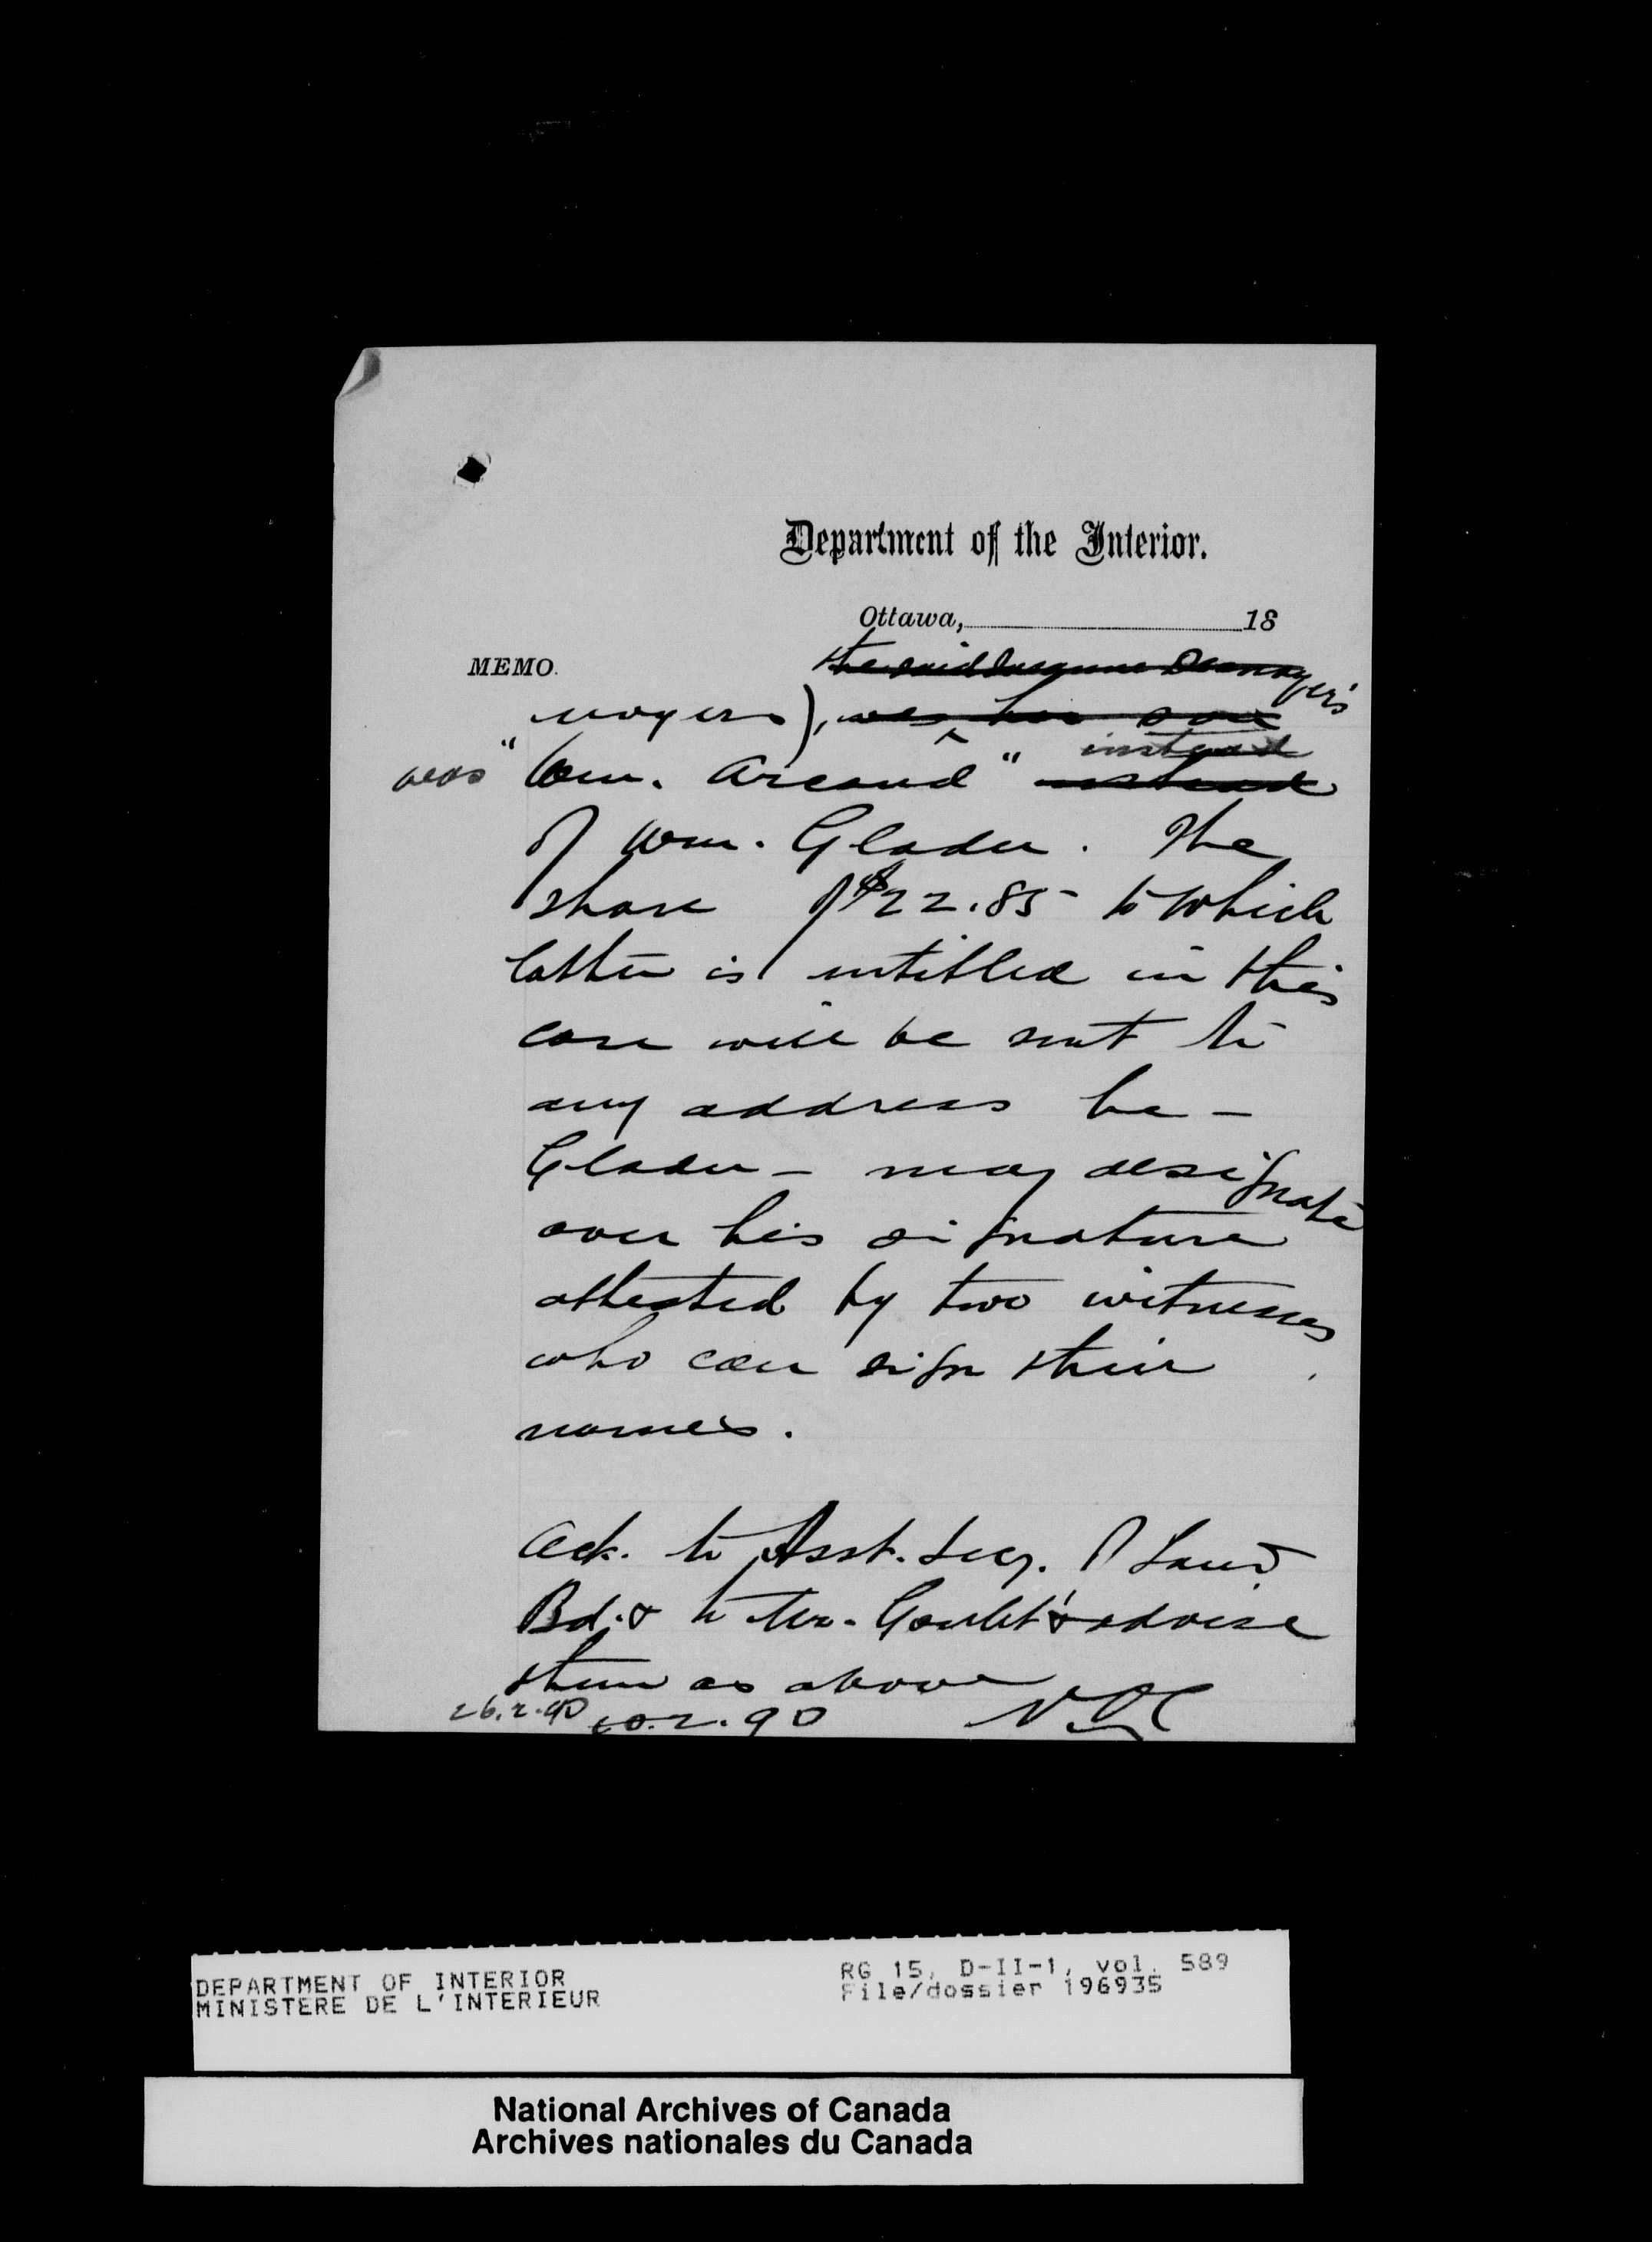 Department of the Interior.
Ottawa, 18
MEMO.
the said
moyers), was her son
instead
was "Wm. Arcand" instead
of Wm. Gladu. The
share of $22.85 to which
latter is entitled in this
case will be sent to
any address he —
Gladu — may designate
over his signature
attested by two witnesses
who can sign their
names.
Ack. to Asst. Secy. of Land
Bd. & to Mr. Goulet & advise
them as above
26.2.90 20.2.90
DEPARTMENT OF INTERIOR
MINISTERE DE L'INTERIEUR
RG 15, D-II-1, vol. 589
File/dossier 196935
National Archives of Canada
Archives nationales du Canada